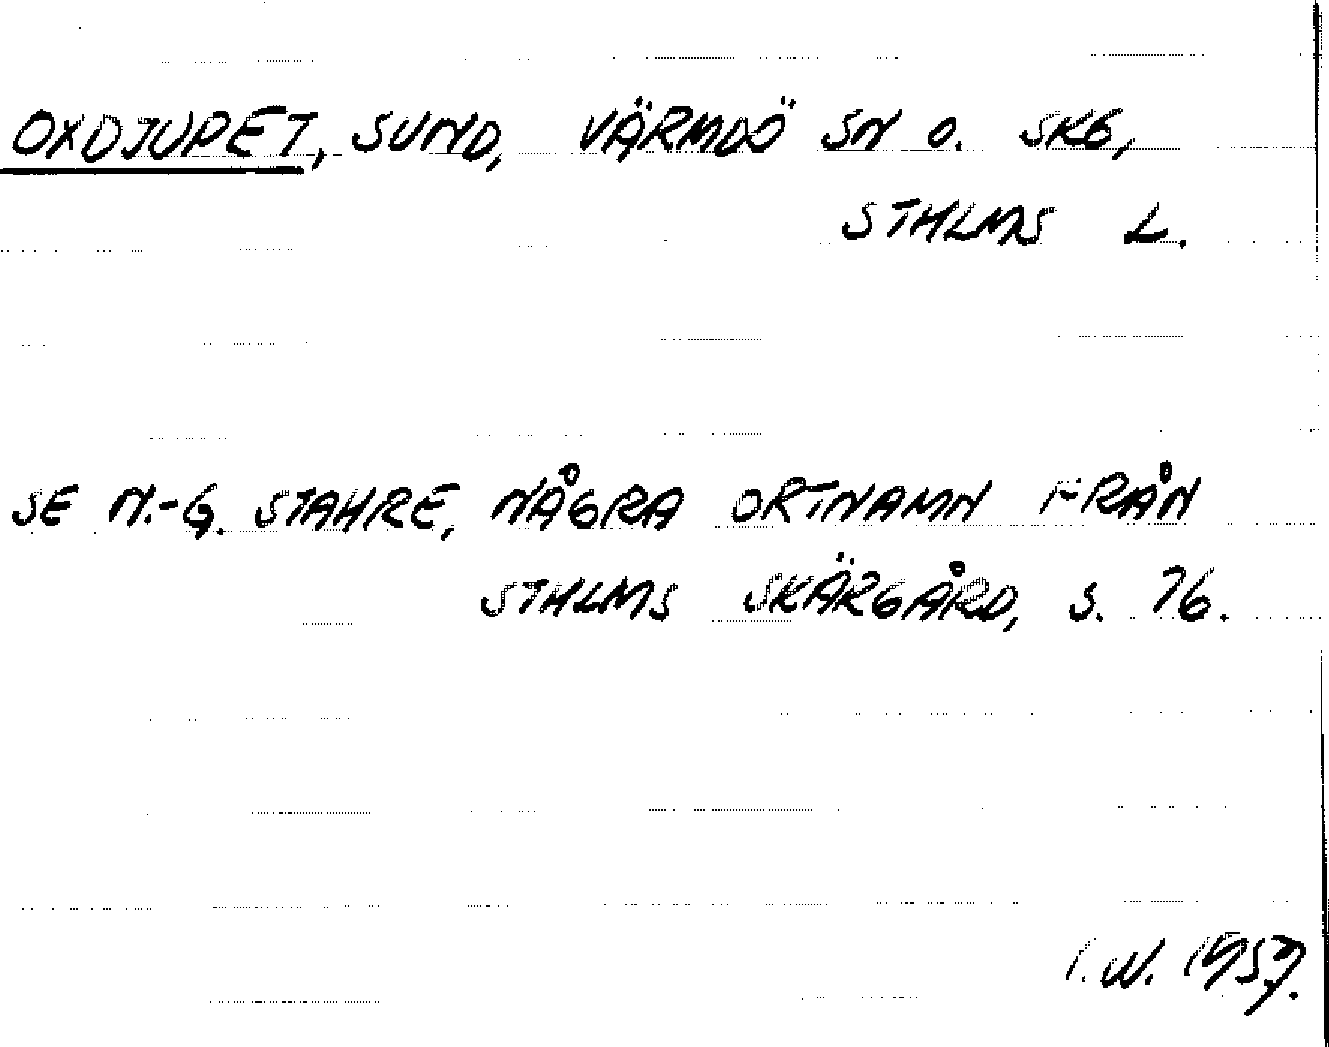 OXDJUPET, SUND, VÄRMDÖ SN O. SKG,
STHLMS L.
SE N.-G. STAHRE, NÅGRA ORTNAMN FRÅN
STHLMS SKÄRGÅRD, S. 76.
I. W. 1957.